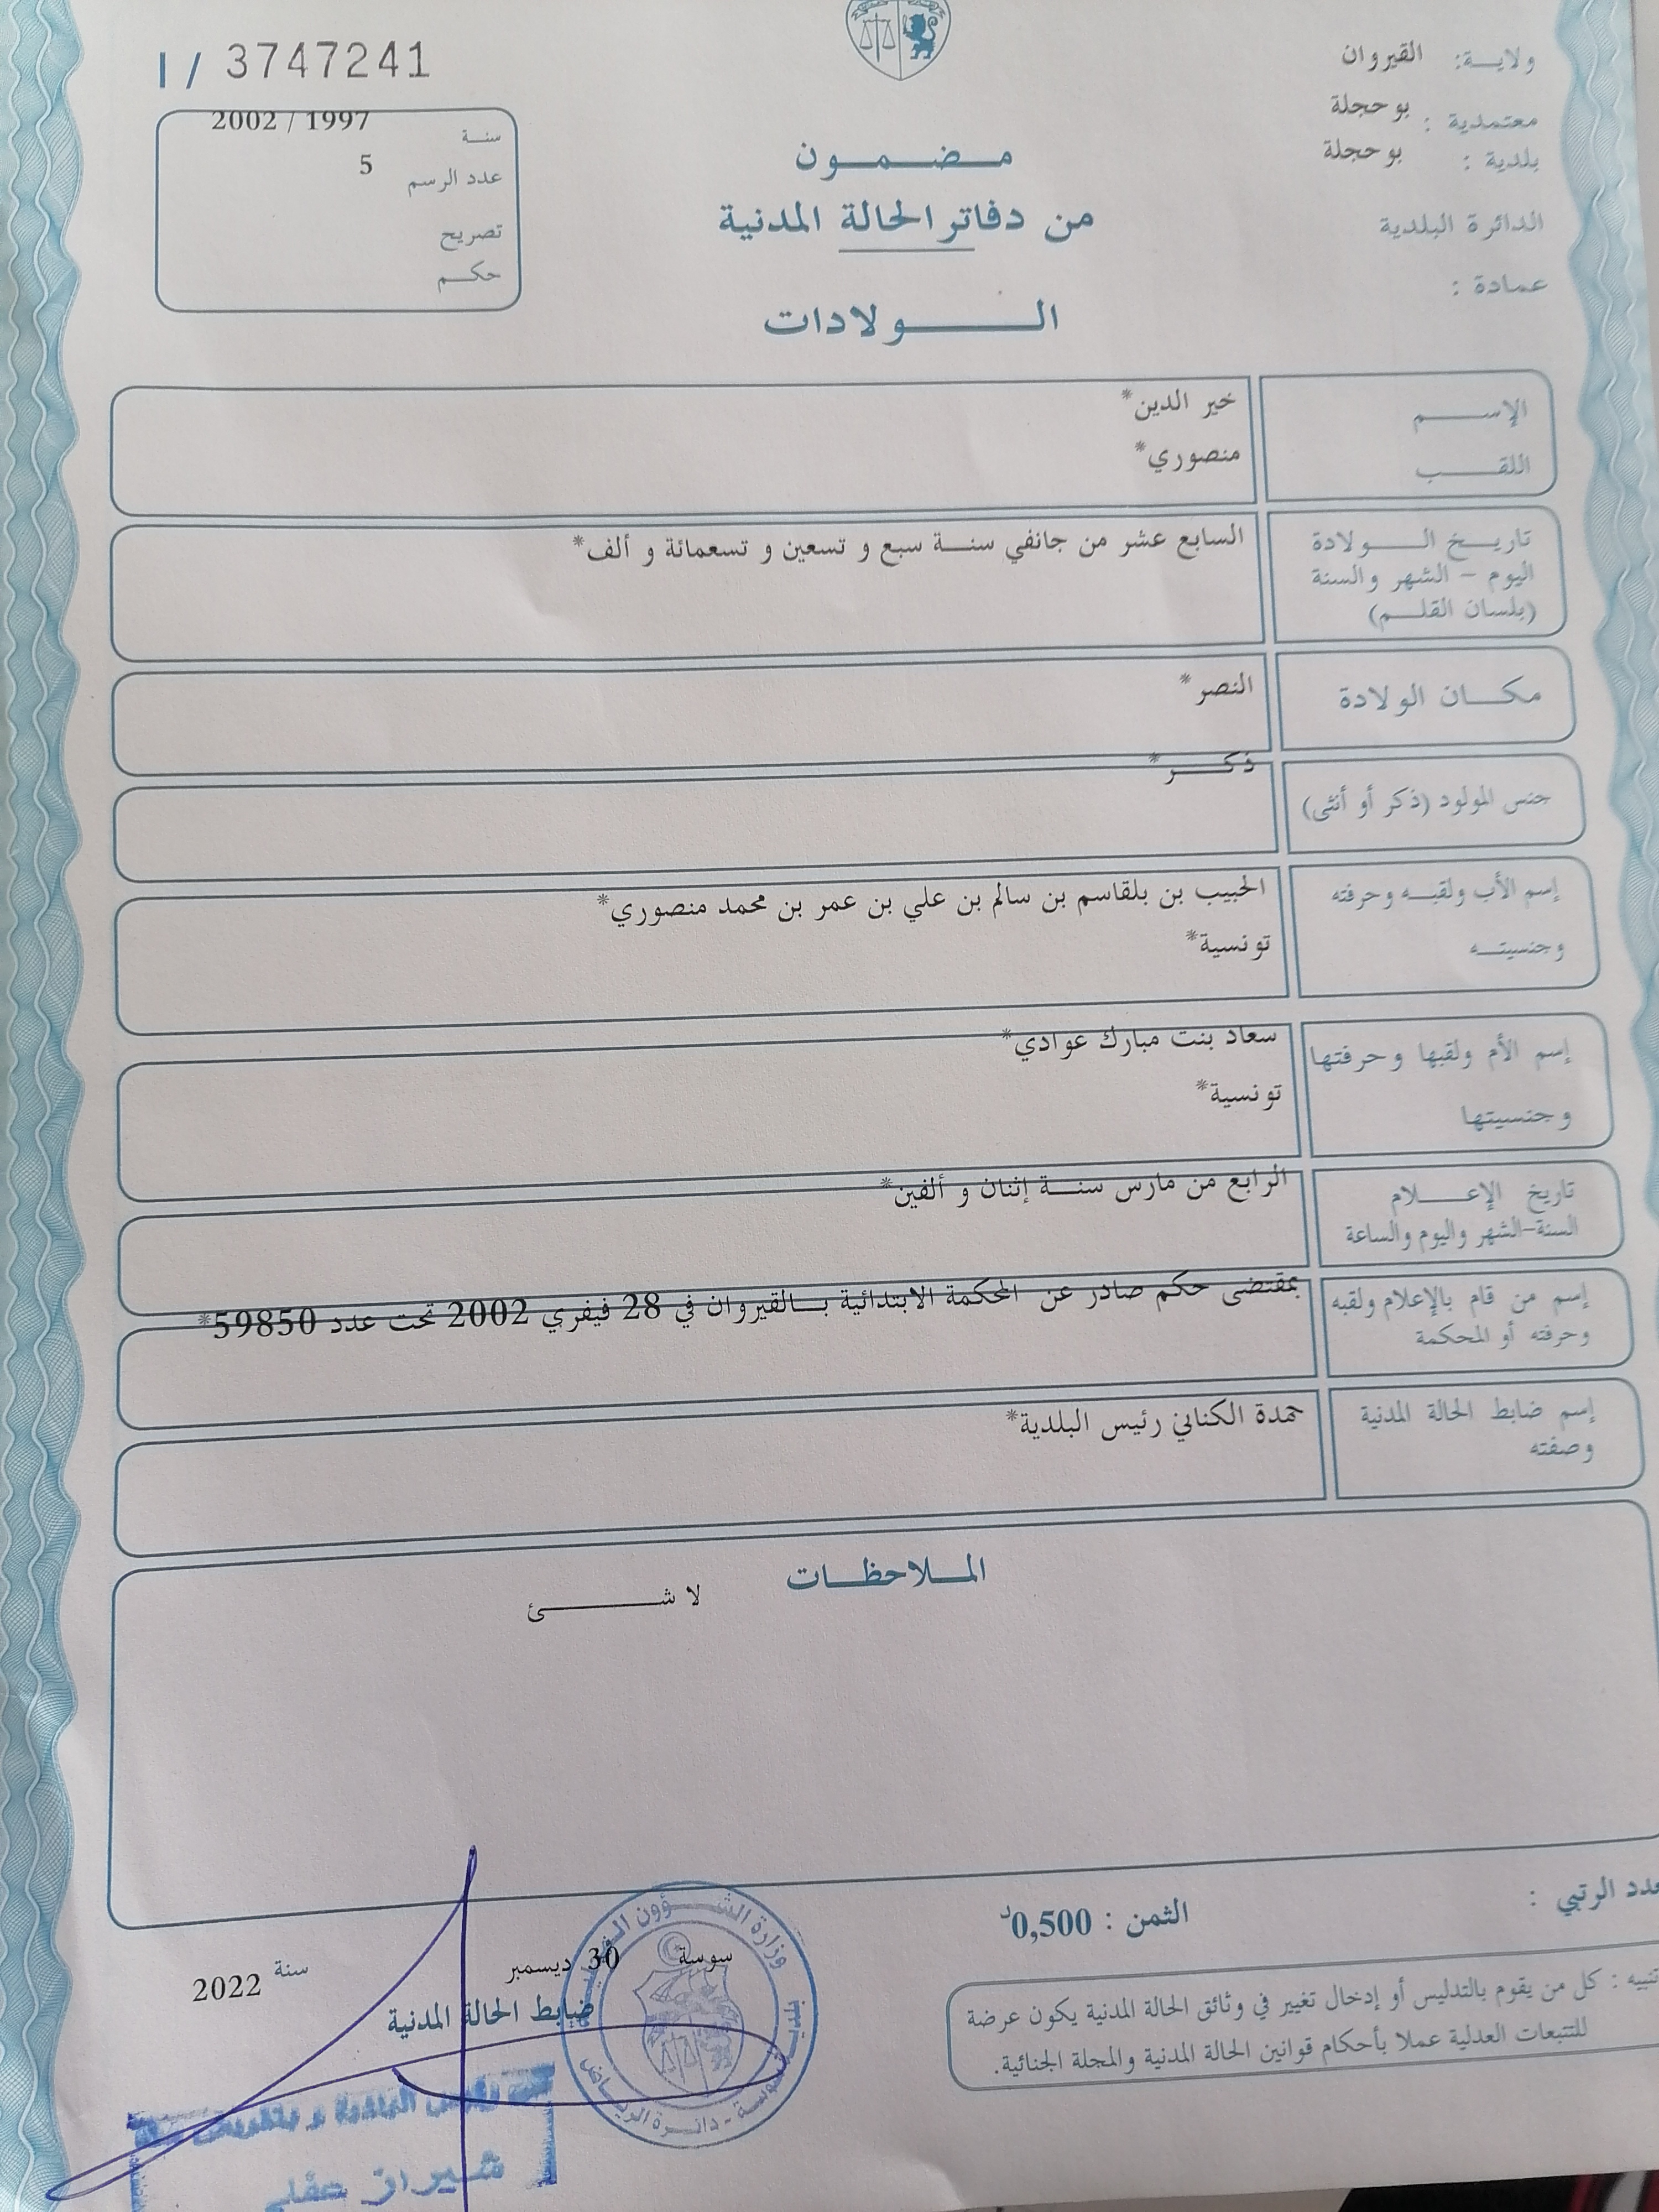 I / 3747241
ولاية: القيروان
معتمدية : بو حجلة
بلدية : بو حجلة
الدائرة البلدية
عمادة :
سنة 1997 / 2002
عدد الرسم 5
تصريح
حكم
مضمون
من دفاتر الحالة المدنية
الولادات
الإسم خير الدين*
اللقب منصوري*
تاريخ الولادة السابع عشر من جانفي سنة سبع و تسعين و تسعمائة و ألف*
اليوم – الشهر والسنة
(بلسان القلم)
مكان الولادة النصر*
جنس المولود (ذكر أو أنثى) ذكر*
إسم الأب ولقبه وحرفته الحبيب بن بلقاسم بن سالم بن علي بن عمر بن محمد منصوري*
وجنسيته تونسية*
إسم الأم ولقبها وحرفتها سعاد بنت مبارك عوادي*
وجنسيتها تونسية*
تاريخ الإعلام الرابع من مارس سنة إثنان و ألفين*
السنة-الشهر واليوم والساعة
إسم من قام بالإعلام ولقبه بمقتضى حكم صادر عن المحكمة الابتدائية بالقيروان في 28 فيفري 2002 تحت عدد 59850*
وحرفته أو المحكمة
إسم ضابط الحالة المدنية حمدة الكناني رئيس البلدية*
وصفته
الملاحظات
لا شئ
عدد الرتبي :
الثمن : 0,500د
تنبيه : كل من يقوم بالتدليس أو إدخال تغيير في وثائق الحالة المدنية يكون عرضة
للتتبعات العدلية عملا بأحكام قوانين الحالة المدنية والمجلة الجنائية.
سوسة 30 ديسمبر سنة 2022
ضابط الحالة المدنية
وزارة الشؤون
سوسة - دائرة الرياض
عن رئيس البلدية و بتفويض منه